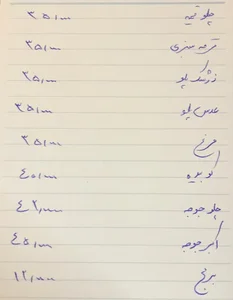 چلو قیمه ۳۵/۰۰۰
قرمه سبزی ۳۵/۰۰۰
زرشک پلو ۳۵/۰۰۰
عدس پلو ۳۵/۰۰۰
مرغ ۳۵/۰۰۰
کوبیده ۴۰/۰۰۰
چلو جوجه ۴۲/۰۰۰
اکبر جوجه ۴۵/۰۰۰
برنج ۱۲/۰۰۰